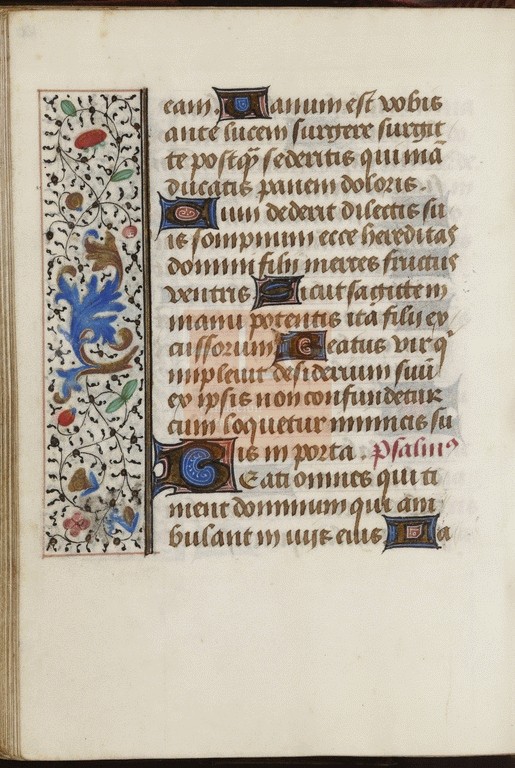 eam. Vanum est vobis
ante lucem surgere surgit
te postq̄ sederitis qui mā
ducatis panem doloris.
Cum dederit dilectis su
is sompnum ecce hereditas
domini filij merces fructus
ventris Sicut sagitte in
manu potentis ita filij ex
cussorum Beatus vir q'
impleuit desiderium suū
ex ipsis non confundetur
cum loquetur inimicis su
is in porta. Psalmꝰ
Beati omnes qui ti
ment dominum qui am
bulant in uiis eius La